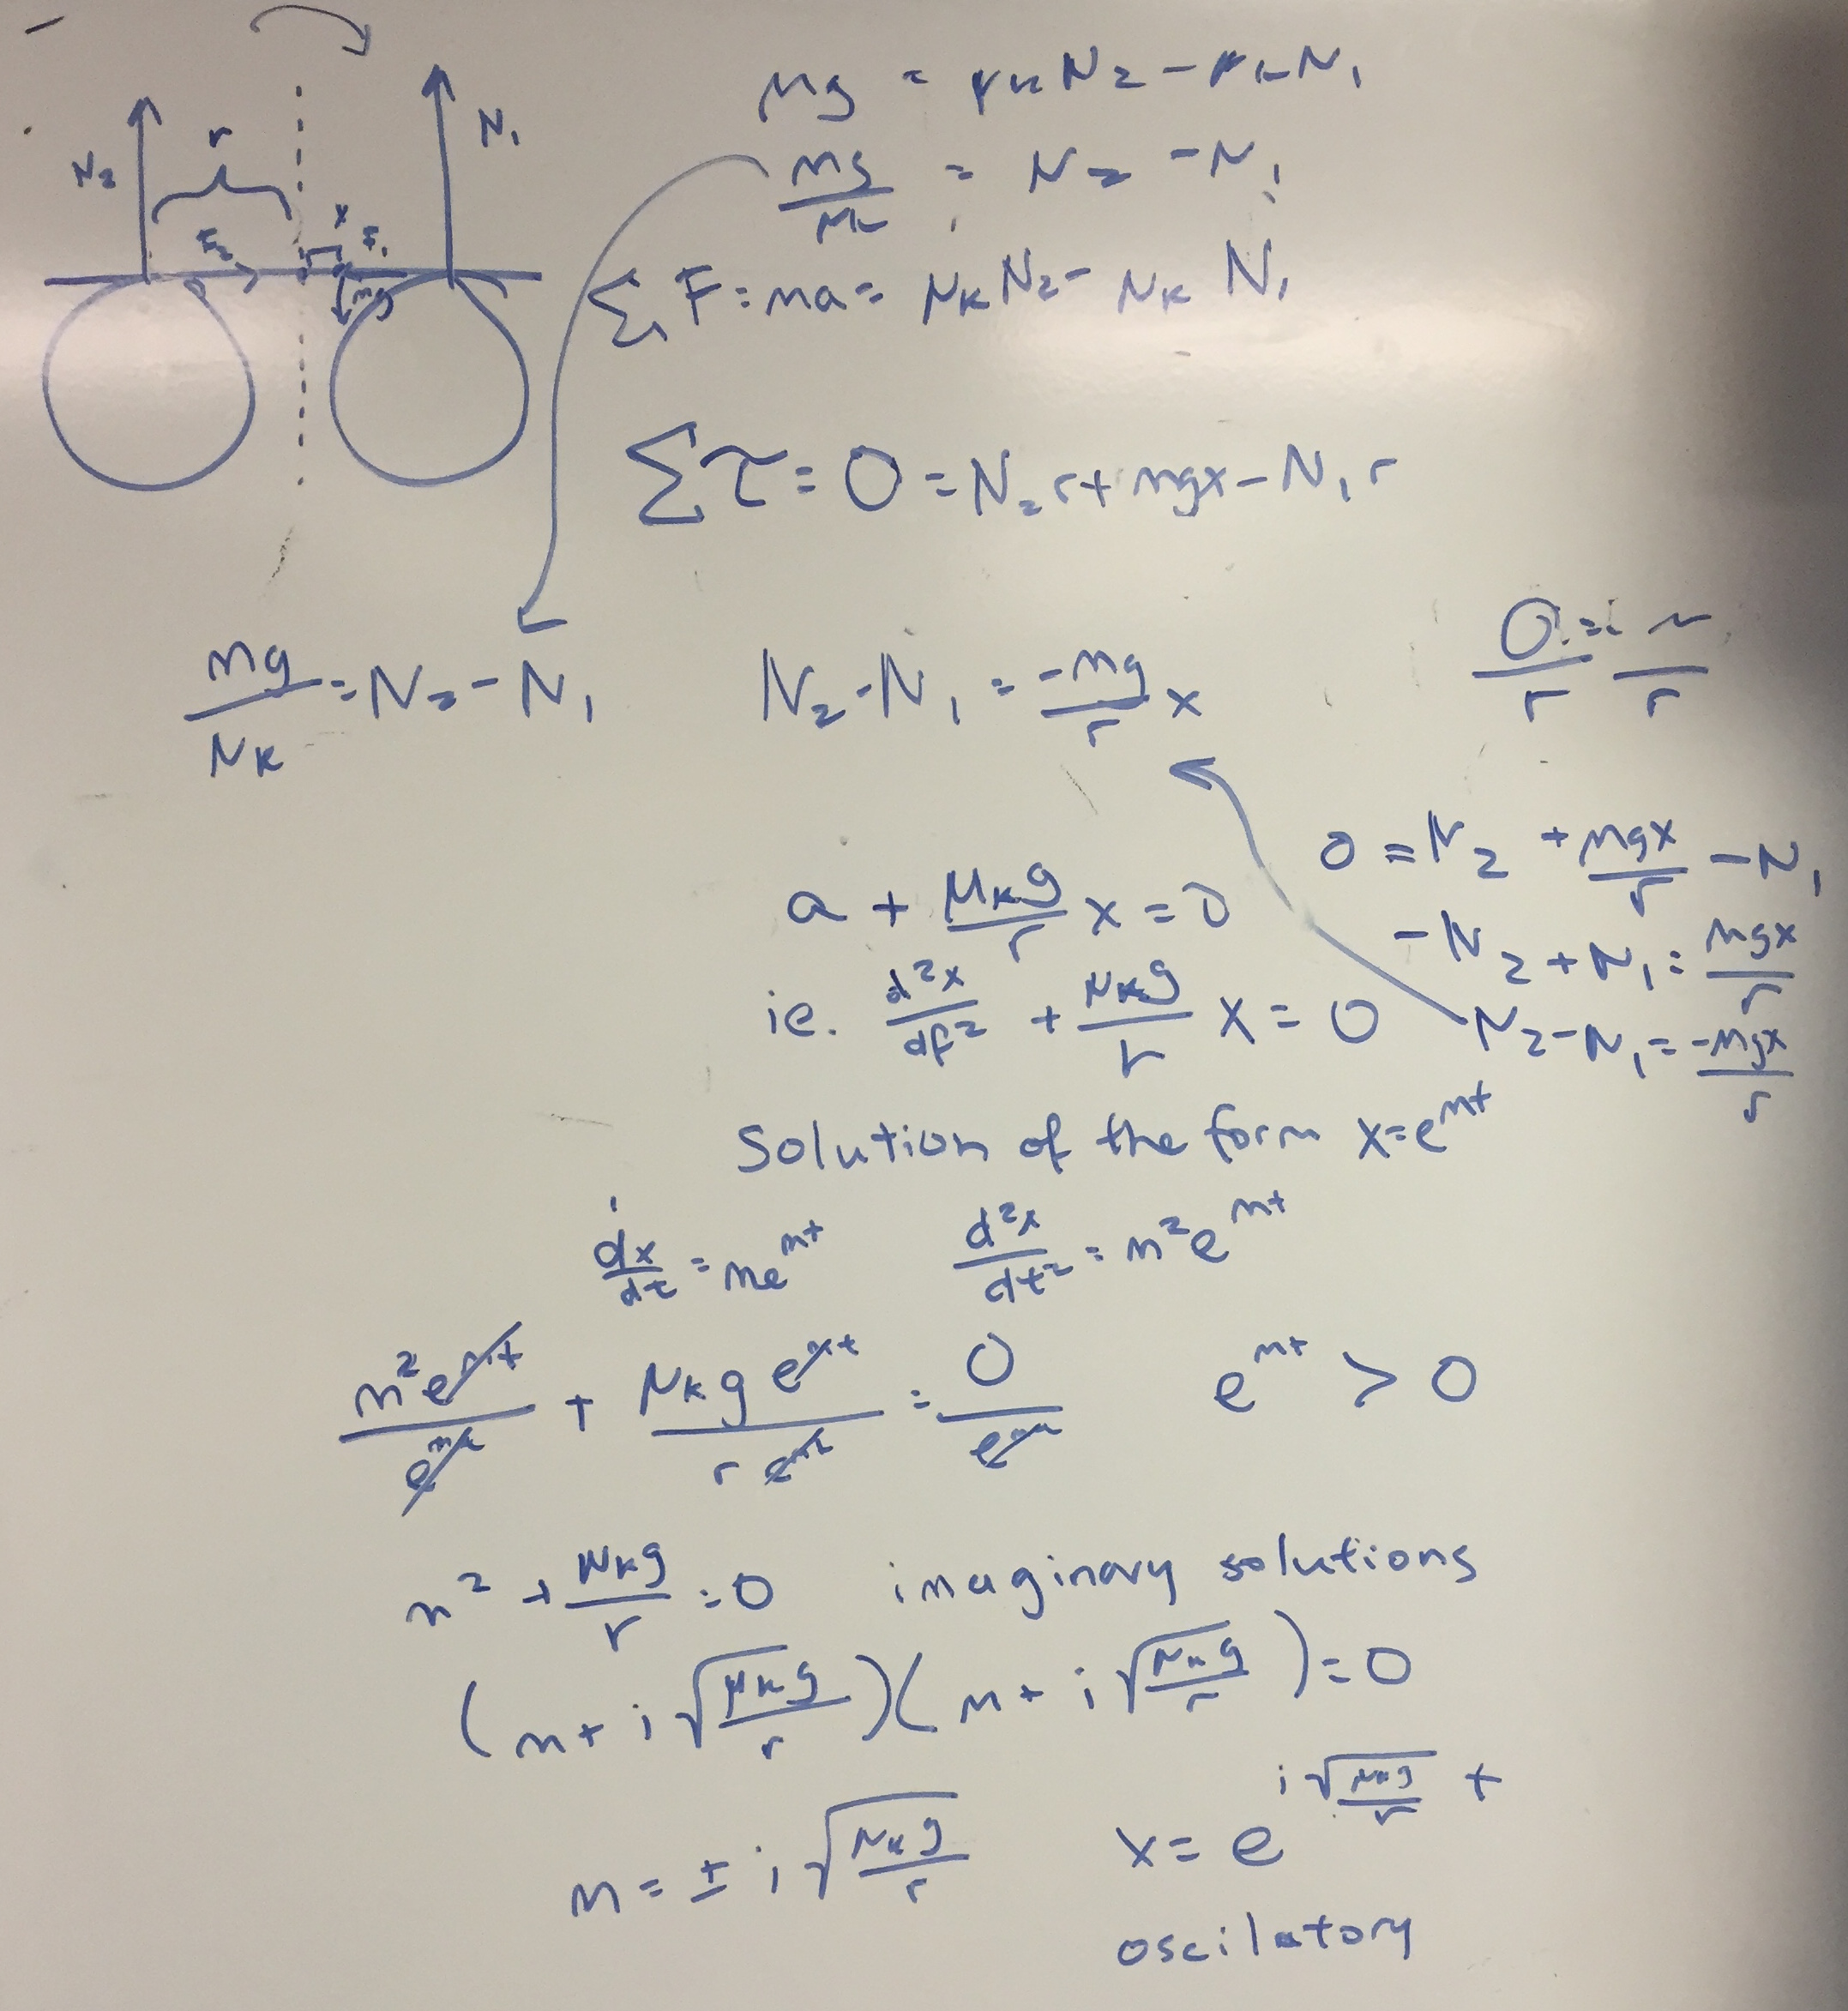 N₂
r
N₁
x
F₂
F₁
mg
ma = μₖN₂ - μₖN₁
ma/μₖ = N₂ - N₁
ΣF = ma = μₖN₂ - μₖN₁
Στ = 0 = N₂r + mgx - N₁r
ma/μₖ = N₂ - N₁
N₂ - N₁ = -mg/r x
0 = N₂ + mgx/r - N₁
-N₂ + N₁ = mgx/r
N₂ - N₁ = -mgx/r
a + μₖg/r x = 0
ie. d²x/dt² + μₖg/r x = 0
Solution of the form x = e^mt
dx/dt = me^mt d²x/dt² = m²e^mt
m²e^mt/e^mt + μₖge^mt/re^mt = 0/e^mt e^mt > 0
m² + μₖg/r = 0 imaginary solutions
(m + i√(μₖg/r))(m + i√(μₖg/r)) = 0
m = ± i√(μₖg/r) x = e^(i√(μₖg/r) t)
oscilatory